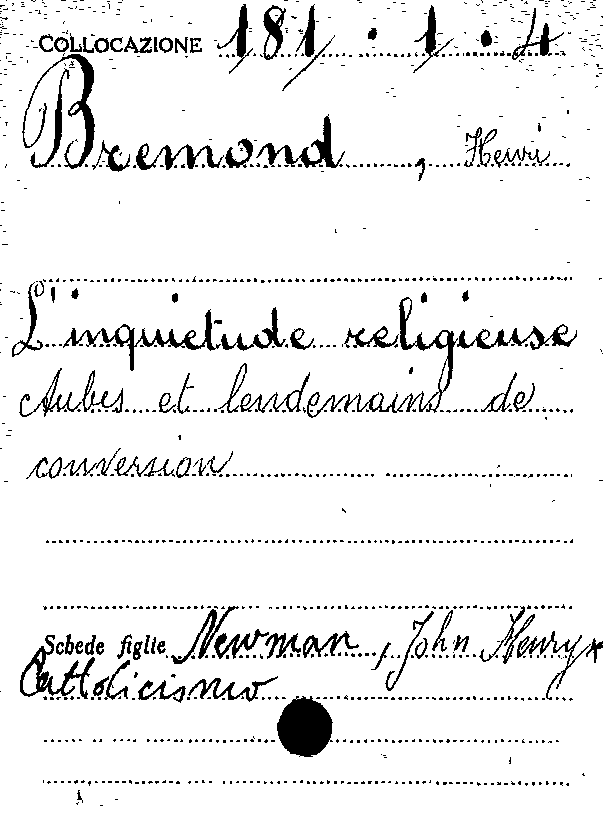 COLLOCAZIONE 181 . 1 . 4
Bremond , Henri
L'inquietude religieuse
Aubes et lendemains de
conversion
Schede figlie Newman, John Henry *
Cattolicismo